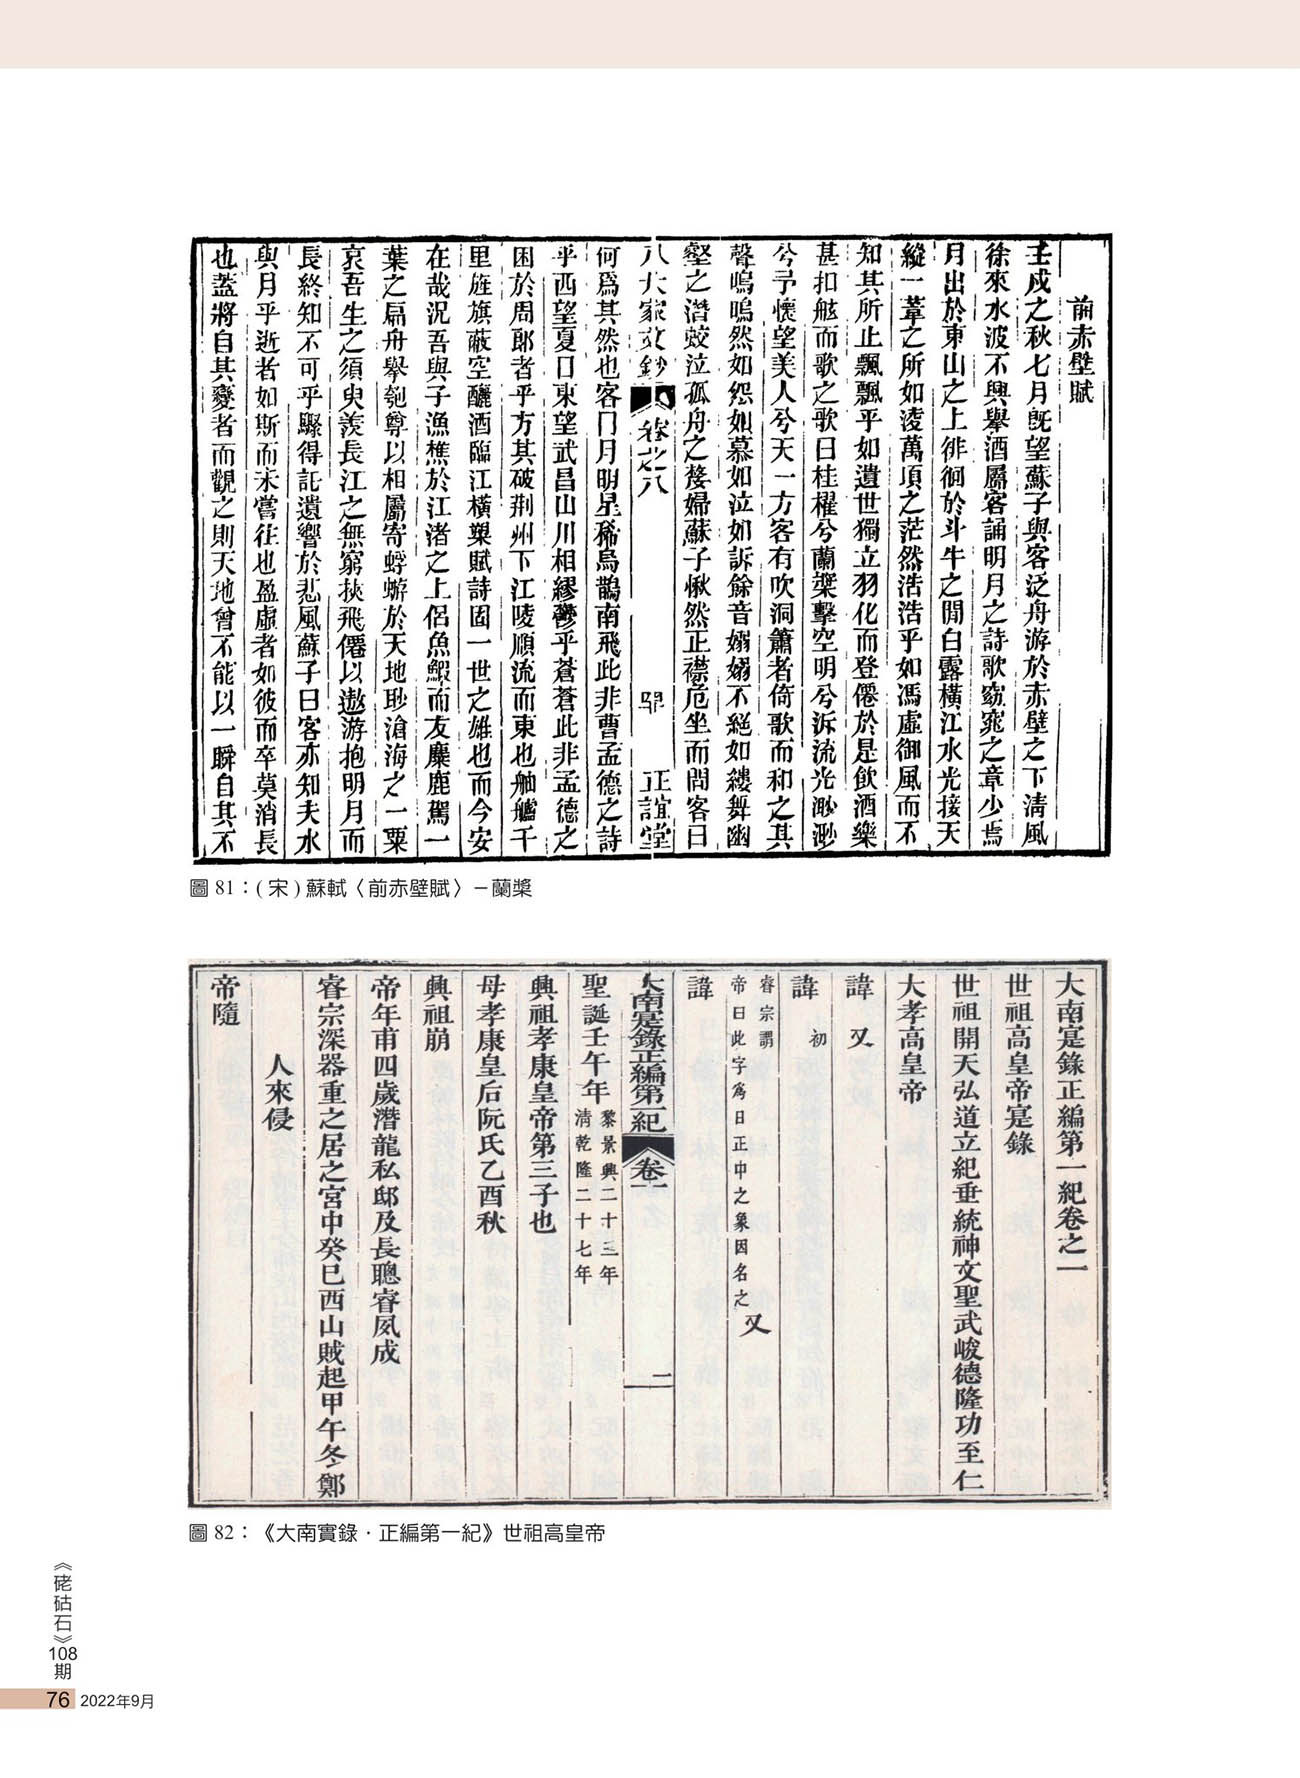 前赤壁賦
壬戌之秋七月既望蘇子與客泛舟游於赤壁之下清風
徐來水波不興舉酒屬客誦明月之詩歌窈窕之章少焉
月出於東山之上徘徊於斗牛之閒白露橫江水光接天
縱一葦之所如淩萬頃之茫然浩浩乎如馮虛御風而不
知其所止飄飄乎如遺世獨立羽化而登僊於是飲酒樂
甚扣舷而歌之歌曰桂櫂兮蘭槳擊空明兮泝流光渺渺
兮予懷望美人兮天一方客有吹洞簫者倚歌而和之其
聲嗚嗚然如怨如慕如泣如訴餘音嫋嫋不絕如縷舞幽
壑之潛蛟泣孤舟之嫠婦蘇子愀然正襟危坐而問客曰
八大家文鈔 卷之八 正誼堂
何爲其然也客曰月明星稀烏鵲南飛此非曹孟德之詩
乎西望夏口東望武昌山川相繆鬱乎蒼蒼此非孟德之
困於周郎者乎方其破荆州下江陵順流而東也舳艫千
里旌旗蔽空釃酒臨江橫槊賦詩固一世之雄也而今安
在哉況吾與子漁樵於江渚之上侣魚鰕而友麋鹿駕一
葉之扁舟舉匏尊以相屬寄蜉蝣於天地眇滄海之一粟
哀吾生之須臾羨長江之無窮挾飛僊以遨游抱明月而
長終知不可乎驟得託遺響於悲風蘇子曰客亦知夫水
與月乎逝者如斯而未嘗往也盈虛者如彼而卒莫消長
也蓋將自其變者而觀之則天地曾不能以一瞬自其不
圖 81：( 宋 ) 蘇軾〈前赤壁賦〉－蘭槳
大南寔錄正編第一紀卷之一
世祖高皇帝寔錄
世祖開天弘道立紀垂統神文聖武峻德隆功至仁
大孝高皇帝
諱 又
諱 初
睿宗謂
帝日此字爲日正中之象因名之 又
諱
大南寔錄正編第一紀 卷一 二
聖誕壬午年 黎景興二十三年
清乾隆二十七年
興祖孝康皇帝第三子也
母孝康皇后阮氏乙酉秋
興祖崩
帝年甫四歲潛龍私邸及長聰睿夙成
睿宗深器重之居之宮中癸巳西山賊起甲午冬鄭
人來侵
帝隨
圖 82：《大南實錄．正編第一紀》世祖高皇帝
《硓𥑮石》108期
76 2022年9月